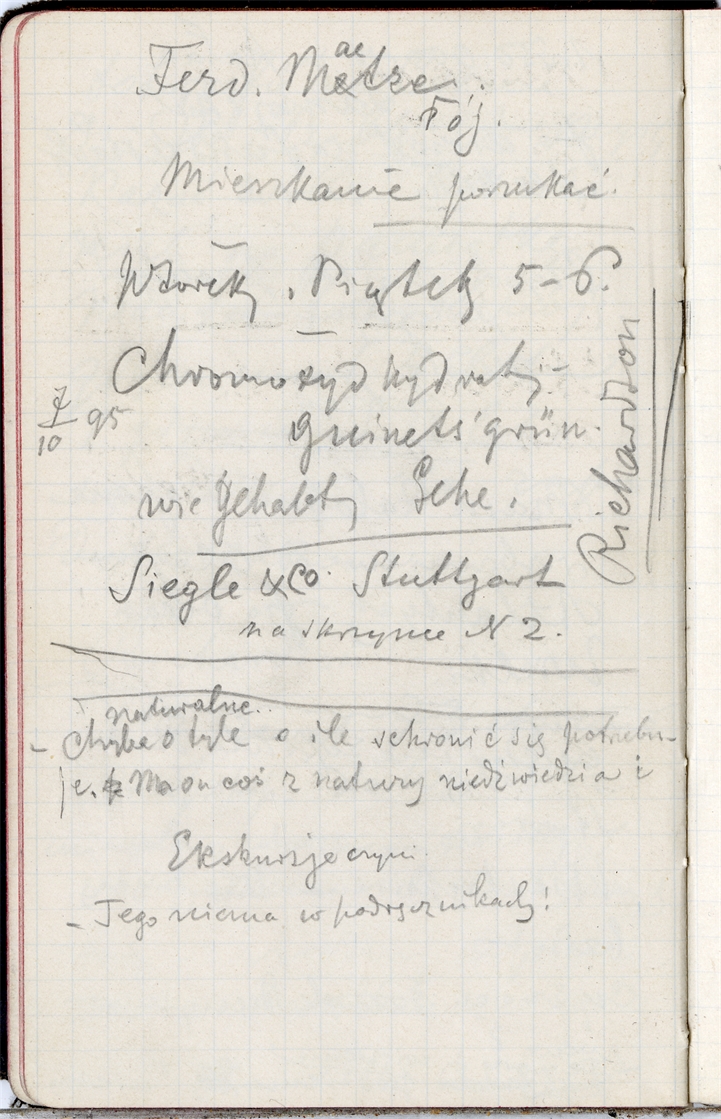 Ferd. Maetze.
Fój.
Mieszkanie poszukać.
Wtorek, Piątek 5-6.
Chromoxyd hydraty
7/10 95
Guinets grün.
wie Gehabt Gehe.
Richardson
Siegle & Co. Stuttgart
na skrzynce N 2.
naturalne..
- Chyba o tyle o ile schronić się potrzebu-
je. Ma on coś z natury niedźwiedzia i
Ekskursje czyni.
- Tego niema w podręcznikach!